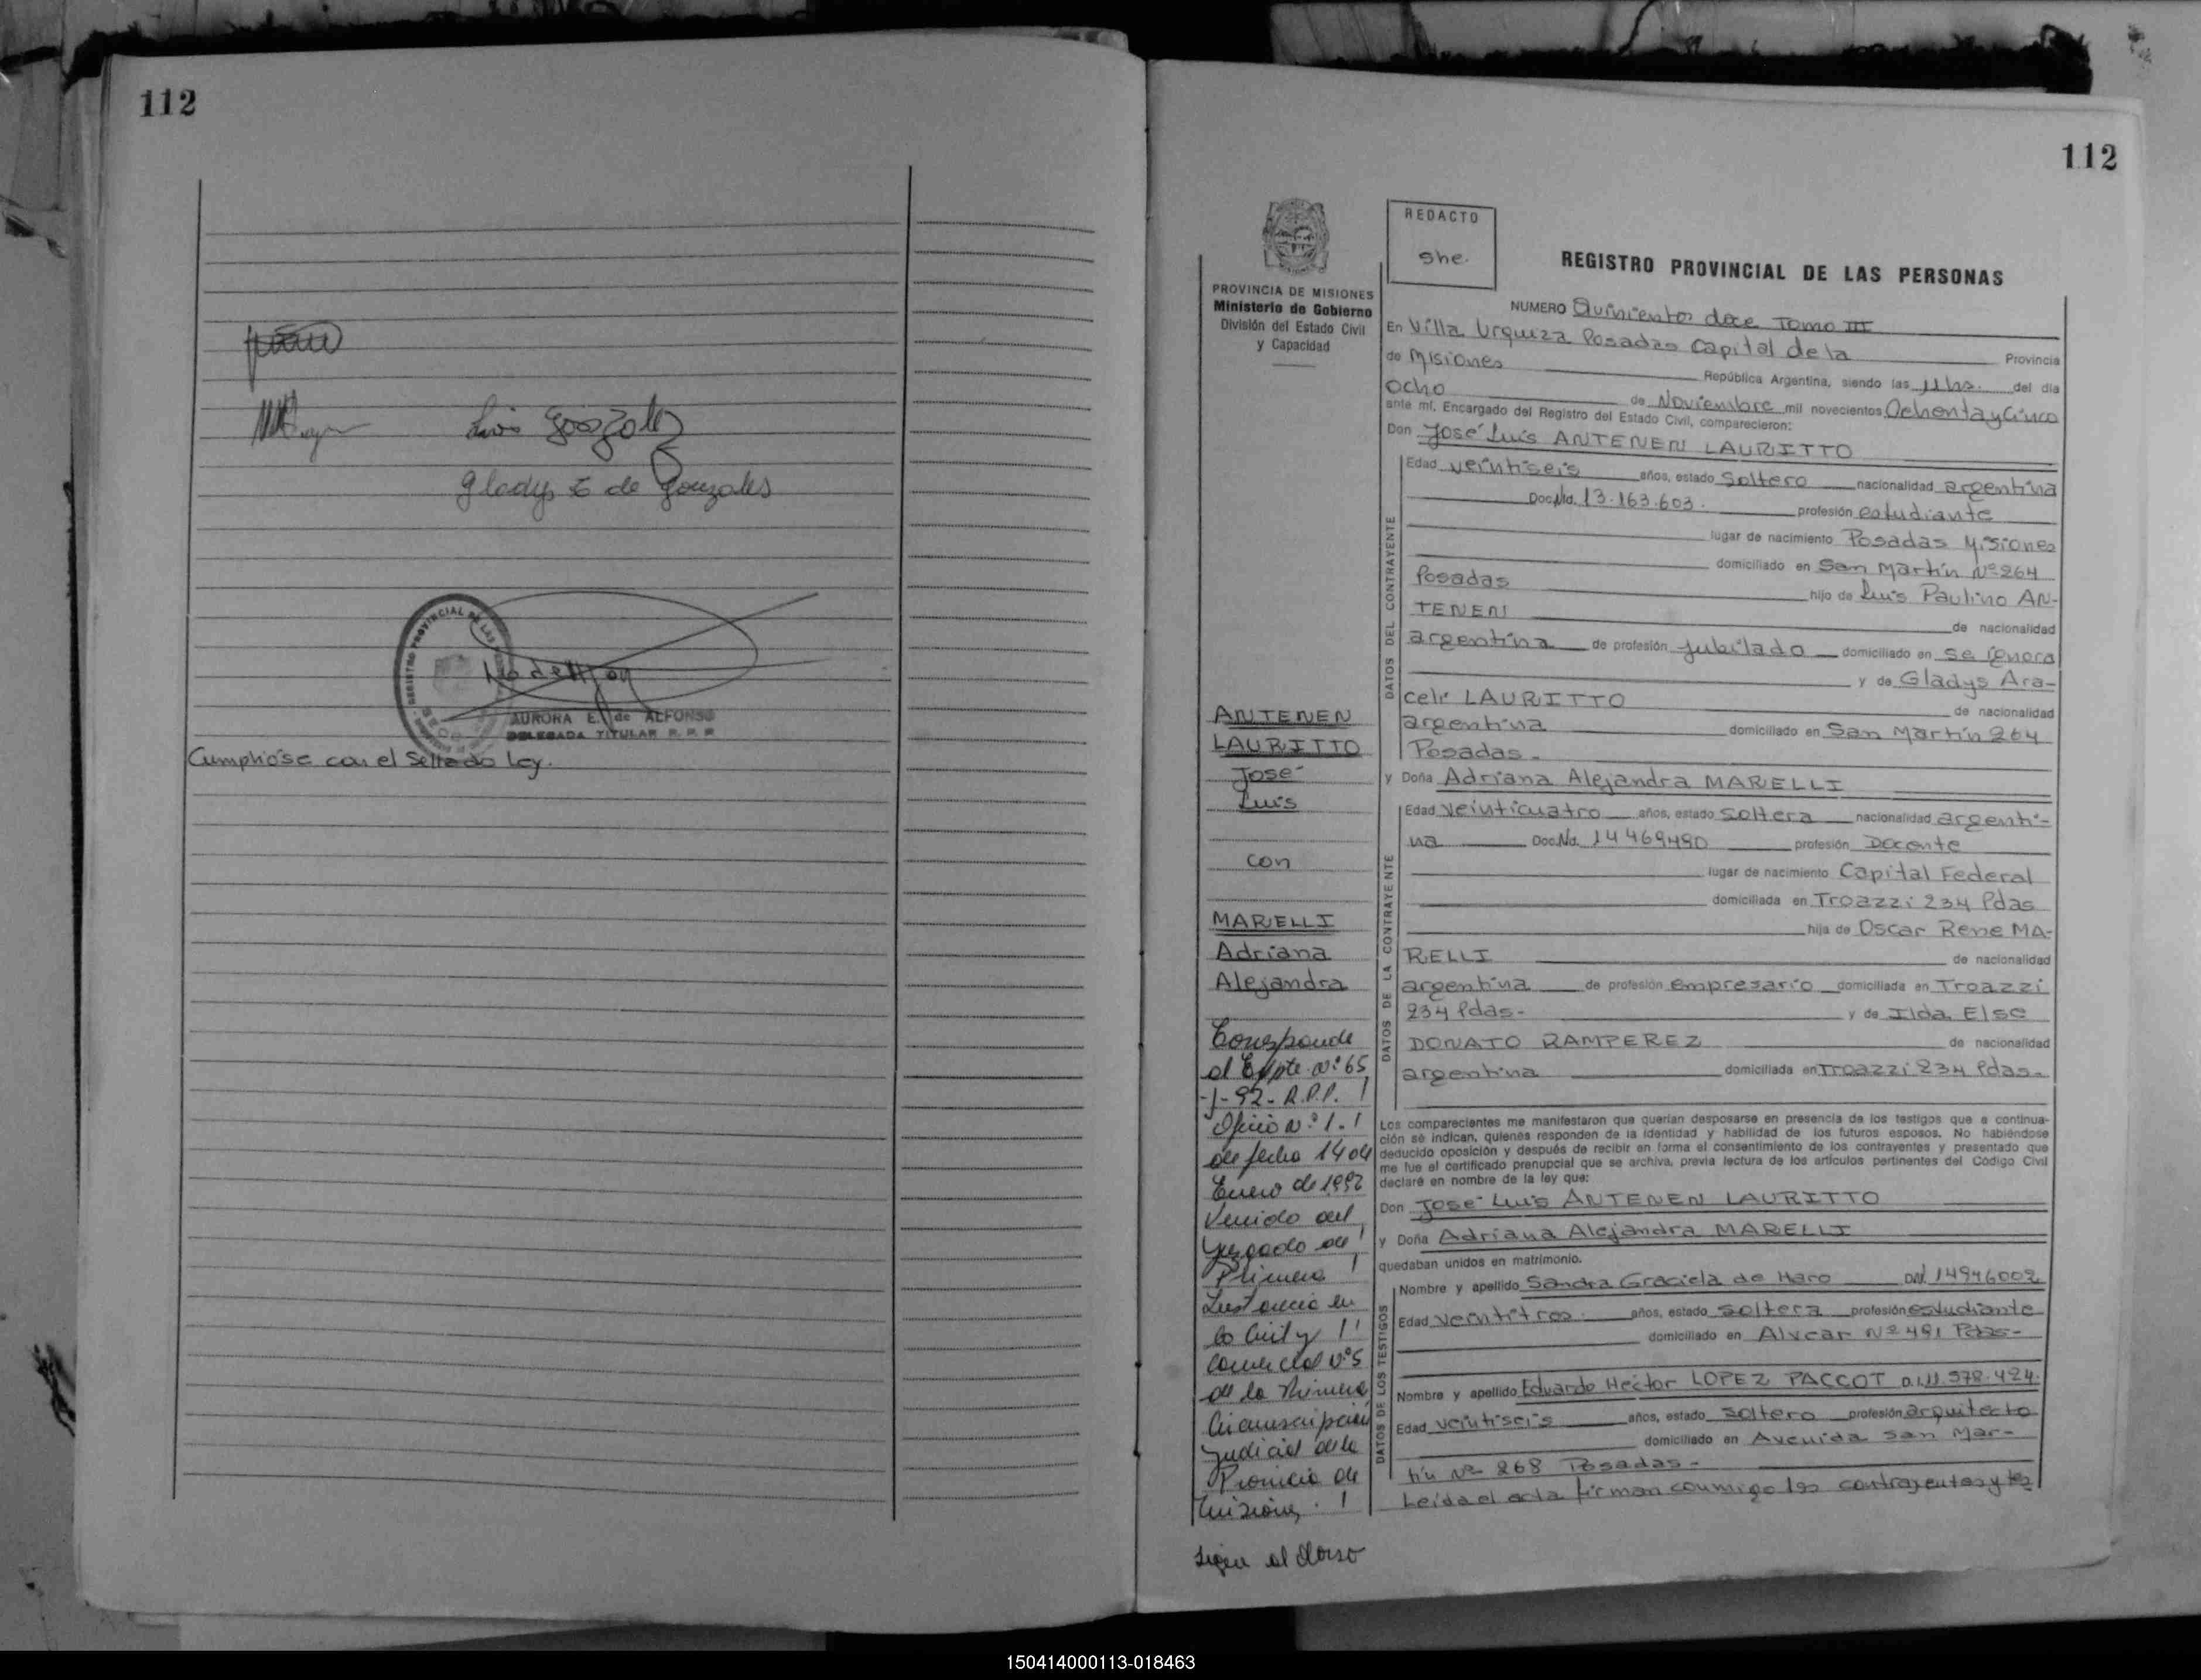 112
Luis Gonzalez
Gladys E de Gonzales
REGISTRO PROVINCIAL DE LAS
AURORA E. de ALFONSO
DELEGADA TITULAR R. P. P.
Cumplióse con el Sellado Ley.
112
REDACTO
she.
PROVINCIA DE MISIONES
Ministerio de Gobierno
División del Estado Civil
y Capacidad
REGISTRO PROVINCIAL DE LAS PERSONAS
NUMERO Quinientos doce Tomo III
En Villa Urquiza Posadas Capital de la Provincia
de Misiones República Argentina, siendo las 11 hs. del día
ocho de Noviembre mil novecientos Ochenta y Cinco
ante mí, Encargado del Registro del Estado Civil, comparecieron:
Don José Luis ANTENEN LAURITTO
DATOS DEL CONTRAYENTE
Edad veintiseis años, estado Soltero nacionalidad argentina
Doc. No. 13.163.603. profesión estudiante
lugar de nacimiento Posadas Misiones
domiciliado en San Martín Nº 264
Posadas hijo de Luis Paulino AN-
TENEN de nacionalidad
argentina de profesión Jubilado domiciliado en se ignora
y de Gladys Ara-
celi LAURITTO de nacionalidad
argentina domiciliado en San Martín 264
Posadas.-
y Doña Adriana Alejandra MARELLI
DATOS DE LA CONTRAYENTE
Edad veinticuatro años, estado soltera nacionalidad argenti-
na Doc. No. 14469480 profesión Docente
lugar de nacimiento Capital Federal
domiciliada en Troazzi 234 Pdas
hija de Oscar Rene MA-
RELLI de nacionalidad
argentina de profesión empresario domiciliada en Troazzi
234 Pdas- y de Ilda Else
DONATO RAMPEREZ de nacionalidad
argentina domiciliada en Troazzi 234 Pdas.-
Los comparecientes me manifestaron que querían desposarse en presencia de los testigos que a continua-
ción se indican, quienes responden de la identidad y habilidad de los futuros esposos. No habiéndose
deducido oposición y después de recibir en forma el consentimiento de los contrayentes y presentado que
me fue el certificado prenupcial que se archiva, previa lectura de los artículos pertinentes del Código Civil
declaré en nombre de la ley que:
Don José Luis ANTENEN LAURITTO
y Doña Adriana Alejandra MARELLI
quedaban unidos en matrimonio.
DATOS DE LOS TESTIGOS
Nombre y apellido Sandra Graciela de Haro DNI. 14946002
Edad veintitres. años, estado soltera profesión estudiante
domiciliado en Alvear Nº 491 Pdas-
Nombre y apellido Eduardo Hector LOPEZ PACCOT D.I. 11.978.424.
Edad veintiseis años, estado soltero profesión arquitecto
domiciliado en Avenida San Mar-
tín Nº 268 Posadas.-
Leida el acta firman conmigo los contrayentes y tes
ANTENEN
LAURITTO
José
Luis
con
MARELLI
Adriana
Alejandra
Corresponde
al Expte. Nº 65
-J-92- R.P.P.
Oficio Nº 1.
de fecha 14 de
Enero de 1992
Venido del
Juzgado de
Primera
Instancia en
lo Civil y
Comercial Nº 5
de la Primera
Circunscripción
Judicial de la
Provincia de
Misiones.
Sigue al dorso
150414000113-018463